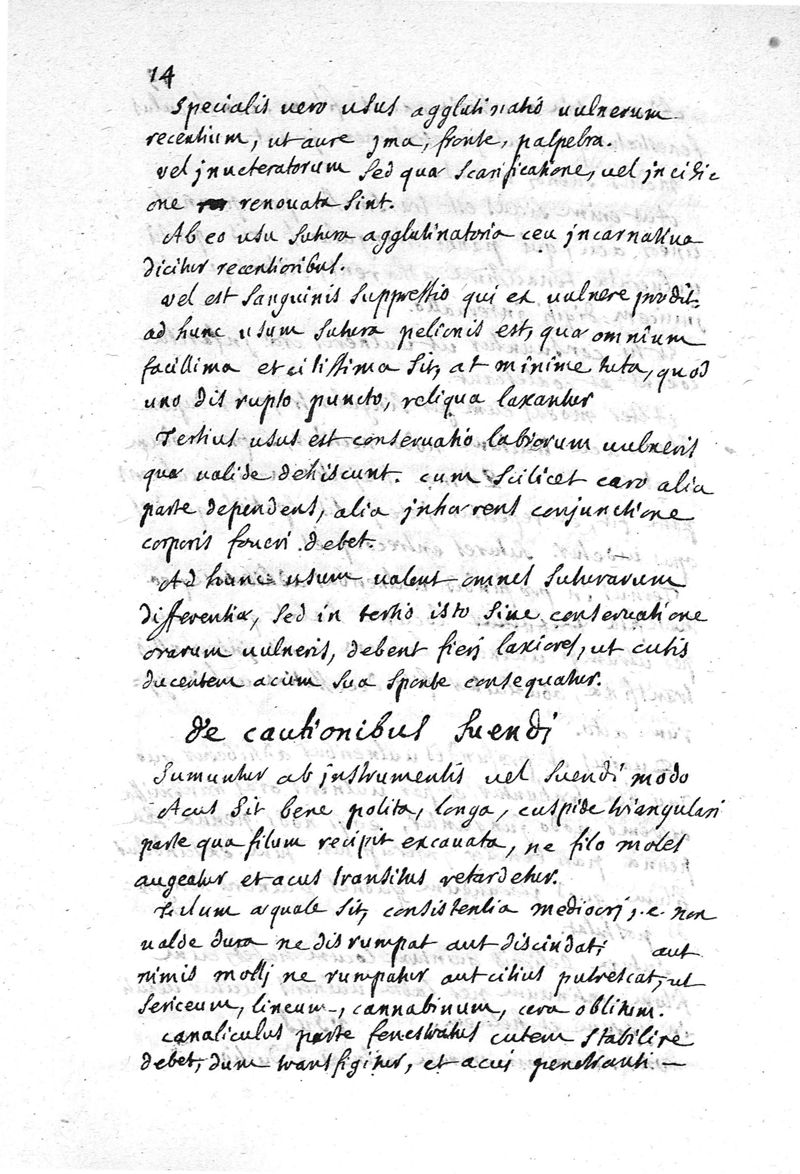 14
Specialis vero usus agglutinatio vulnerum
recentium, ut aure jma, fronte, palpebra.
vel jnveteratorum sed qua scarificatione, vel jncisic
one renovata sint.
Ab eo usu sutura agglutinatoria ceu jncarnativa
dicitur recentioribus.
vel est sanguinis suppressio qui ex vulnere prodit.
ad hunc usum sutura pelionis est, qua omnium
facillima et citissima sit, at minime tuta, quod
uno disrupto puncto, reliqua laxantur
Tertius usus est conservatio labiorum vulneris
qua valide dehiscunt. cum scilicet caro alia
parte dependens, alia jnhærens conjunctione
corporis foveri debet.
Ad hunc usum valent omnes suturarum
differentiæ, sed in tertio isto sine conservatione
orarum vulneris, debent fierj laxiores, ut cutis
ducentem acum sua sponte consequatur.
De cautionibus suendj
Sumuntur ab jnstrumentis vel suendj modo
Acus sit bene polita, longa, cuspide triangulari
parte qua filum recipit excavata, ne filo moles
augeatur et acus transitus retardetur.
Filum æquale sit, consistentia mediocrj, i.e. non
valde dura ne disrumpat aut discindat; aut
nimis mollj ne rumpatur aut citius putrescat, ut
sericeum, lineum, cannabinum, cera oblitum.
Canaliculus parte fenestratus cutem stabilire
debet, dum transfigitur, et acus penetranti. —